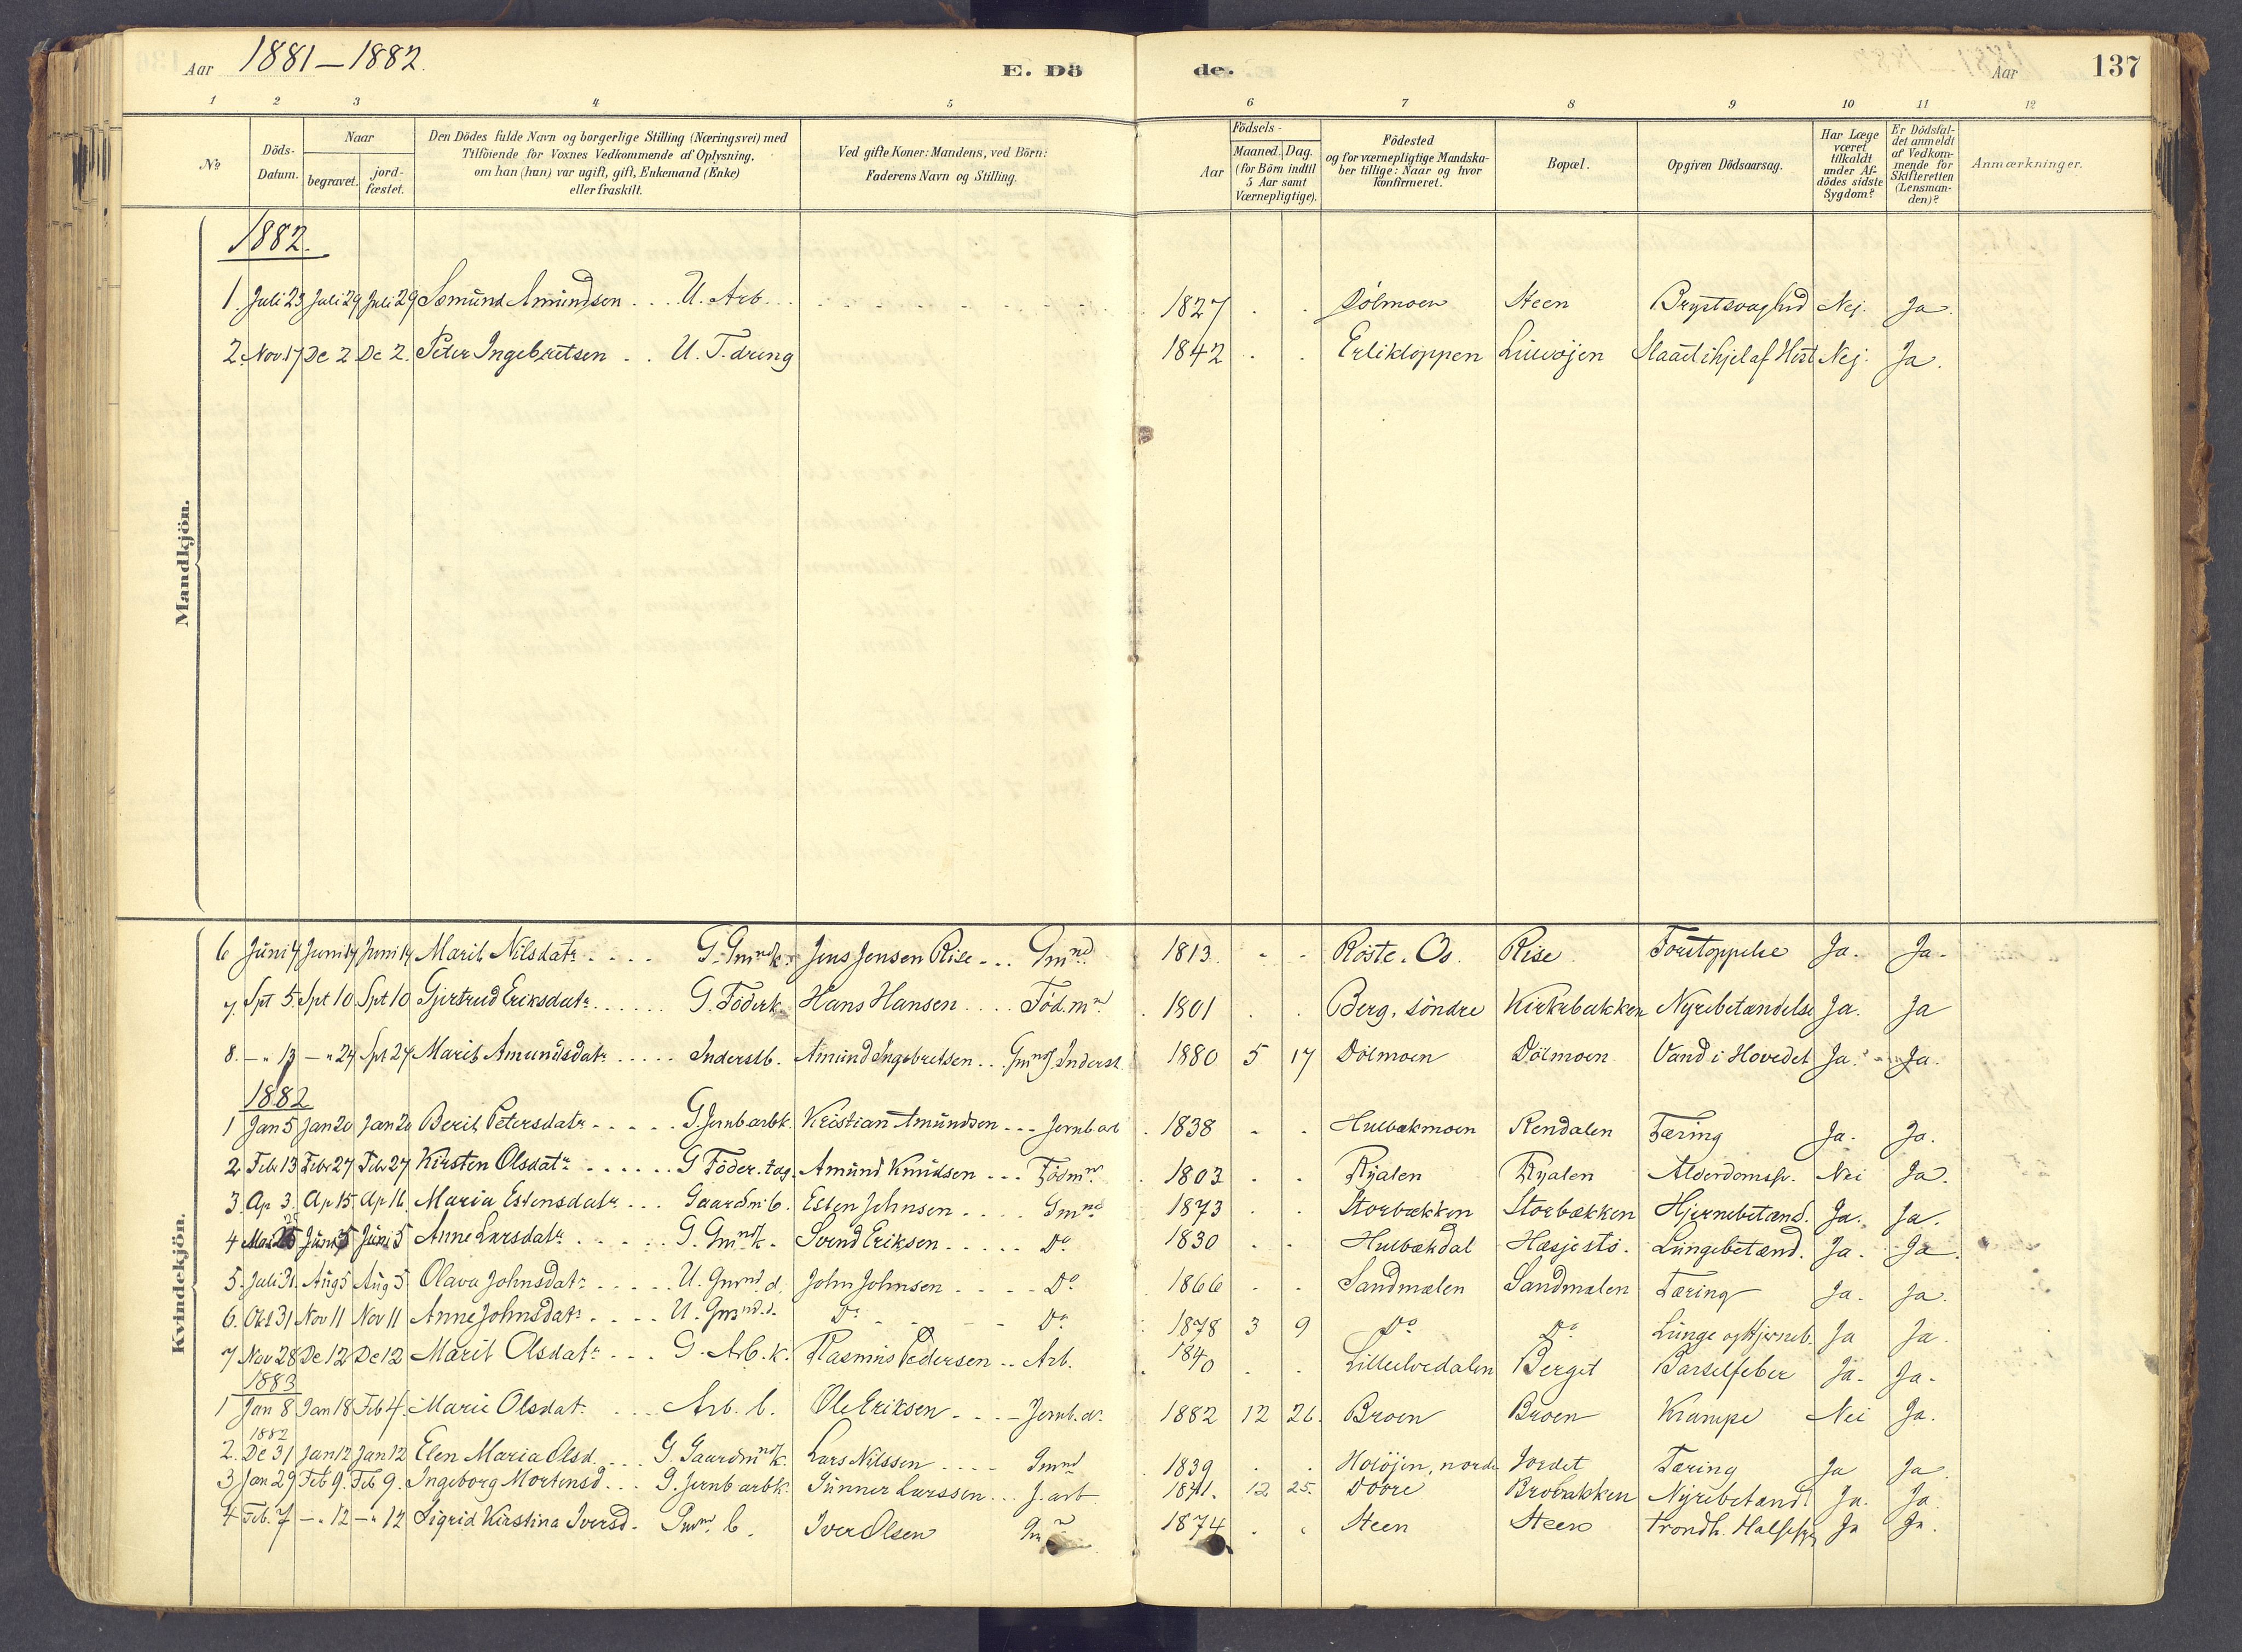 Aar 1881–1882. E. Dö de. Aar 137
1 2 3 4 5 6 7 8 9 10 11 12
No.
Döds-Datum.
Naar
begravet.
jord-fæstet.
Den Dödes fulde Navn og borgerlige Stilling (Næringsvei) med
Tilföiende for Voxnes Vedkommende af Oplysning,
om han (hun) var ugift, gift, Enkemand (Enke)
eller fraskilt.
Ved gifte Koner: Mandens, ved Börn:
Faderens Navn og Stilling.
Födsels-
Aar
Maaned. Dag.
(for Börn indtil
5 Aar samt
Værnepligtige).
Födested
og for værnepligtige Mandska-
ber tillige: Naar og hvor
konfirmeret.
Bopæl.
Opgiven Dödsaarsag.
Har Læge
været
tilkaldt
under Af-
dödes sidste
Sygdom?
Er Dödsfal-
det anmeldt
af Vedkom-
mende for
Skifteretten
(Lensman-
den)?
Anmærkninger.
Mandkjön.
1882.
1. Juli 23 Juli 29 Juli 29 Amund Amundsen . . . U. Arb. . . 1827 . . Dölmoen Steen Brystsvaghed Nej. Ja.
2. Nov. 17 De 2 De 2. Peter Ingebretsen . . U. T. dreng 1842 . . Erlikloppen Nej. Ja.
Kvindekjön.
6 Juni 4 Juni 14 Juni 14 Marit Nilsdatr . . . . G. Gmndk. Jens Jensen Rise . . . Gmnd. 1813. - - Röste. Os. Rise Forstoppelse Ja. Ja.
7. Spt 5. Spt 10 Spt 10 Gjertrud Eriksdatr. . . . . . G. Föderk. Hans Hansen . . . . Föd.mn. 1801 . . Berg, söndre Kirkebakken Nyrebetændelse Ja. Ja
8. – " 13 – " 24 Spt 24 Marit Amundsdatr . . . . . Inderstb. Amund Ingebretsen . . Inderst. 1880 5 17 Dölmoen Dölmoen Vand i Hovedet Ja. Ja.
1882
1 Jan 5 Jan 20 Jan 20 Berit Petersdatr . . . . . G. Jernbarbk. Kristian Amundsen . . . Jernb.arb 1838 - - Hulbækmoen Rendalen Tæring Ja. Ja.
2. Febr 13 Febr 27 Febr 27 Kirsten Olsdatr . . . . . . G Föder.tag. Amund Knudsen . . . Födmn. 1803 . . Ryalen Ryalen Alderdomssv. Nei Ja.
3. Ap 3. Ap 15 Ap 16 Maria Estensdatr . . . Gaardm b. Esten Johnsen . . . . Gmnd 1873 . . Storbækken Storbækken Hjernebetænd. Ja. Ja.
4 Mai 25 Juni 5 Juni 5 Anne Larsdatr . . . . . . G. Gmndk. Svend Eriksen . . . . . Do. 1830 . . Hulbækdal Hæsjestö. Lungebetænd. Ja. Ja.
5. Juli 31. Aug 5 Aug 5 Olava Johnsdatr . . . . U. Gmnd. d. John Johnsen . . . . . Do 1866 . . Sandmælen Sandmælen Tæring Ja. Ja.
6. Okt 31 Nov 11 Nov 11 Anne Johnsdatr . . . . U. Gmnd.d. Do. - - - Do. 1878 3 9 Do. Do. Lunge og Hjerneb. Ja Ja.
7 Nov 28 De 12 De 12 Marit Olsdatr . . . G. Arb. k. Rasmus Pedersen . . Arb. 1840 . . Lilleelvedalen Berget Barselfeber Ja. Ja.
1883
1 Jan 8 Jan 18 Feb 4. Marie Olsdat. . . . Arb. b. Ole Eriksen . . . . Jernb.a. 1882 12 26. Broen Broen Krampe Nei Ja.
1882
2. De 31 Jan 12 Jan 12 Elen Maria Olsd. . . . G. Gaardmndk. Lars Nilssen . . . . Gmnd 1839 . . Holöjen, nordr Jordet Tæring Ja Ja
3 Jan 29 Feb 9. Feb 9. Ingeborg Mortensd . . . G. Jernb arbk. Gunner Larssen . . . J. arb 1841. 12 25. Dovre Brobakken Nyrebetænd. Ja. Ja
4 Feb. 7 – " 12 – " 12 Sigrid Kirstina Iversd. b. Iver Olsen 1874 . . Steen Steen Ja Ja.